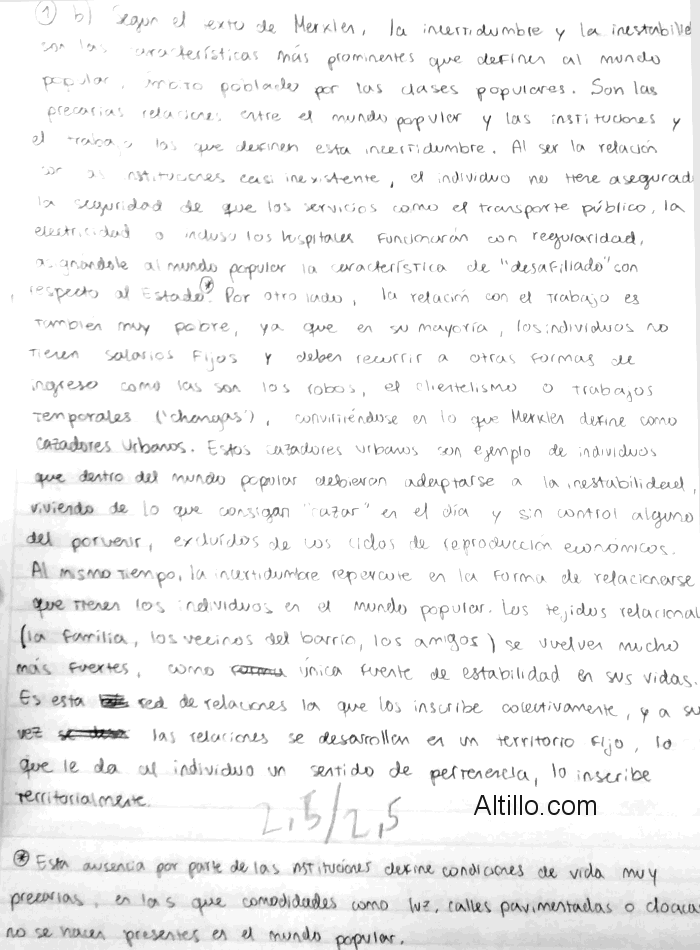 ① b) Según el texto de Merklen, la incertidumbre y la inestabilid
son las características más prominentes que definen al mundo
popular, poblado por las clases populares. Son las
precarias relaciones entre el mundo popular y las instituciones y
el trabajo las que definen esta incertidumbre. Al ser la relación
con las instituciones casi inexistente, el individuo no tiene asegurad
la seguridad de que los servicios como el transporte público, la
electricidad o incluso los hospitales funcionarán con regularidad,
asignandole al mundo popular la característica de "desafiliado" con
respecto al Estado⊛. Por otro lado, la relación con el trabajo es
también muy pobre, ya que en su mayoría, los individuos no
tienen salarios fijos y deben recurrir a otras formas de
ingreso como las son los robos, el clientelismo o trabajos
temporales ('changas'), convirtiéndose en lo que Merklen define como
cazadores urbanos. Estos cazadores urbanos son ejemplo de individuos
que dentro del mundo popular debieron adaptarse a la inestabilidad,
viviendo de lo que consigan "cazar" en el día y sin control alguno
del porvenir, excluídos de los ciclos de reproducción económicos.
Al mismo tiempo, la incertidumbre repercute en la forma de relacionarse
que tienen los individuos en el mundo popular. Los tejidos relacional
(la familia, los vecinos del barrio, los amigos) se vuelven mucho
más fuertes, como única fuente de estabilidad en sus vidas.
Es esta red de relaciones la que los inscribe colectivamente, y a su
vez las relaciones se desarrollan en un territorio fijo, lo
que le da al individuo un sentido de pertenencia, lo inscribe
territorialmente.
2,5/2,5
Altillo.com
⊛ Esta ausencia por parte de las instituciones define condiciones de vida muy
precarias, en las que comodidades como luz, calles pavimentadas o cloacas
no se hacen presentes en el mundo popular.